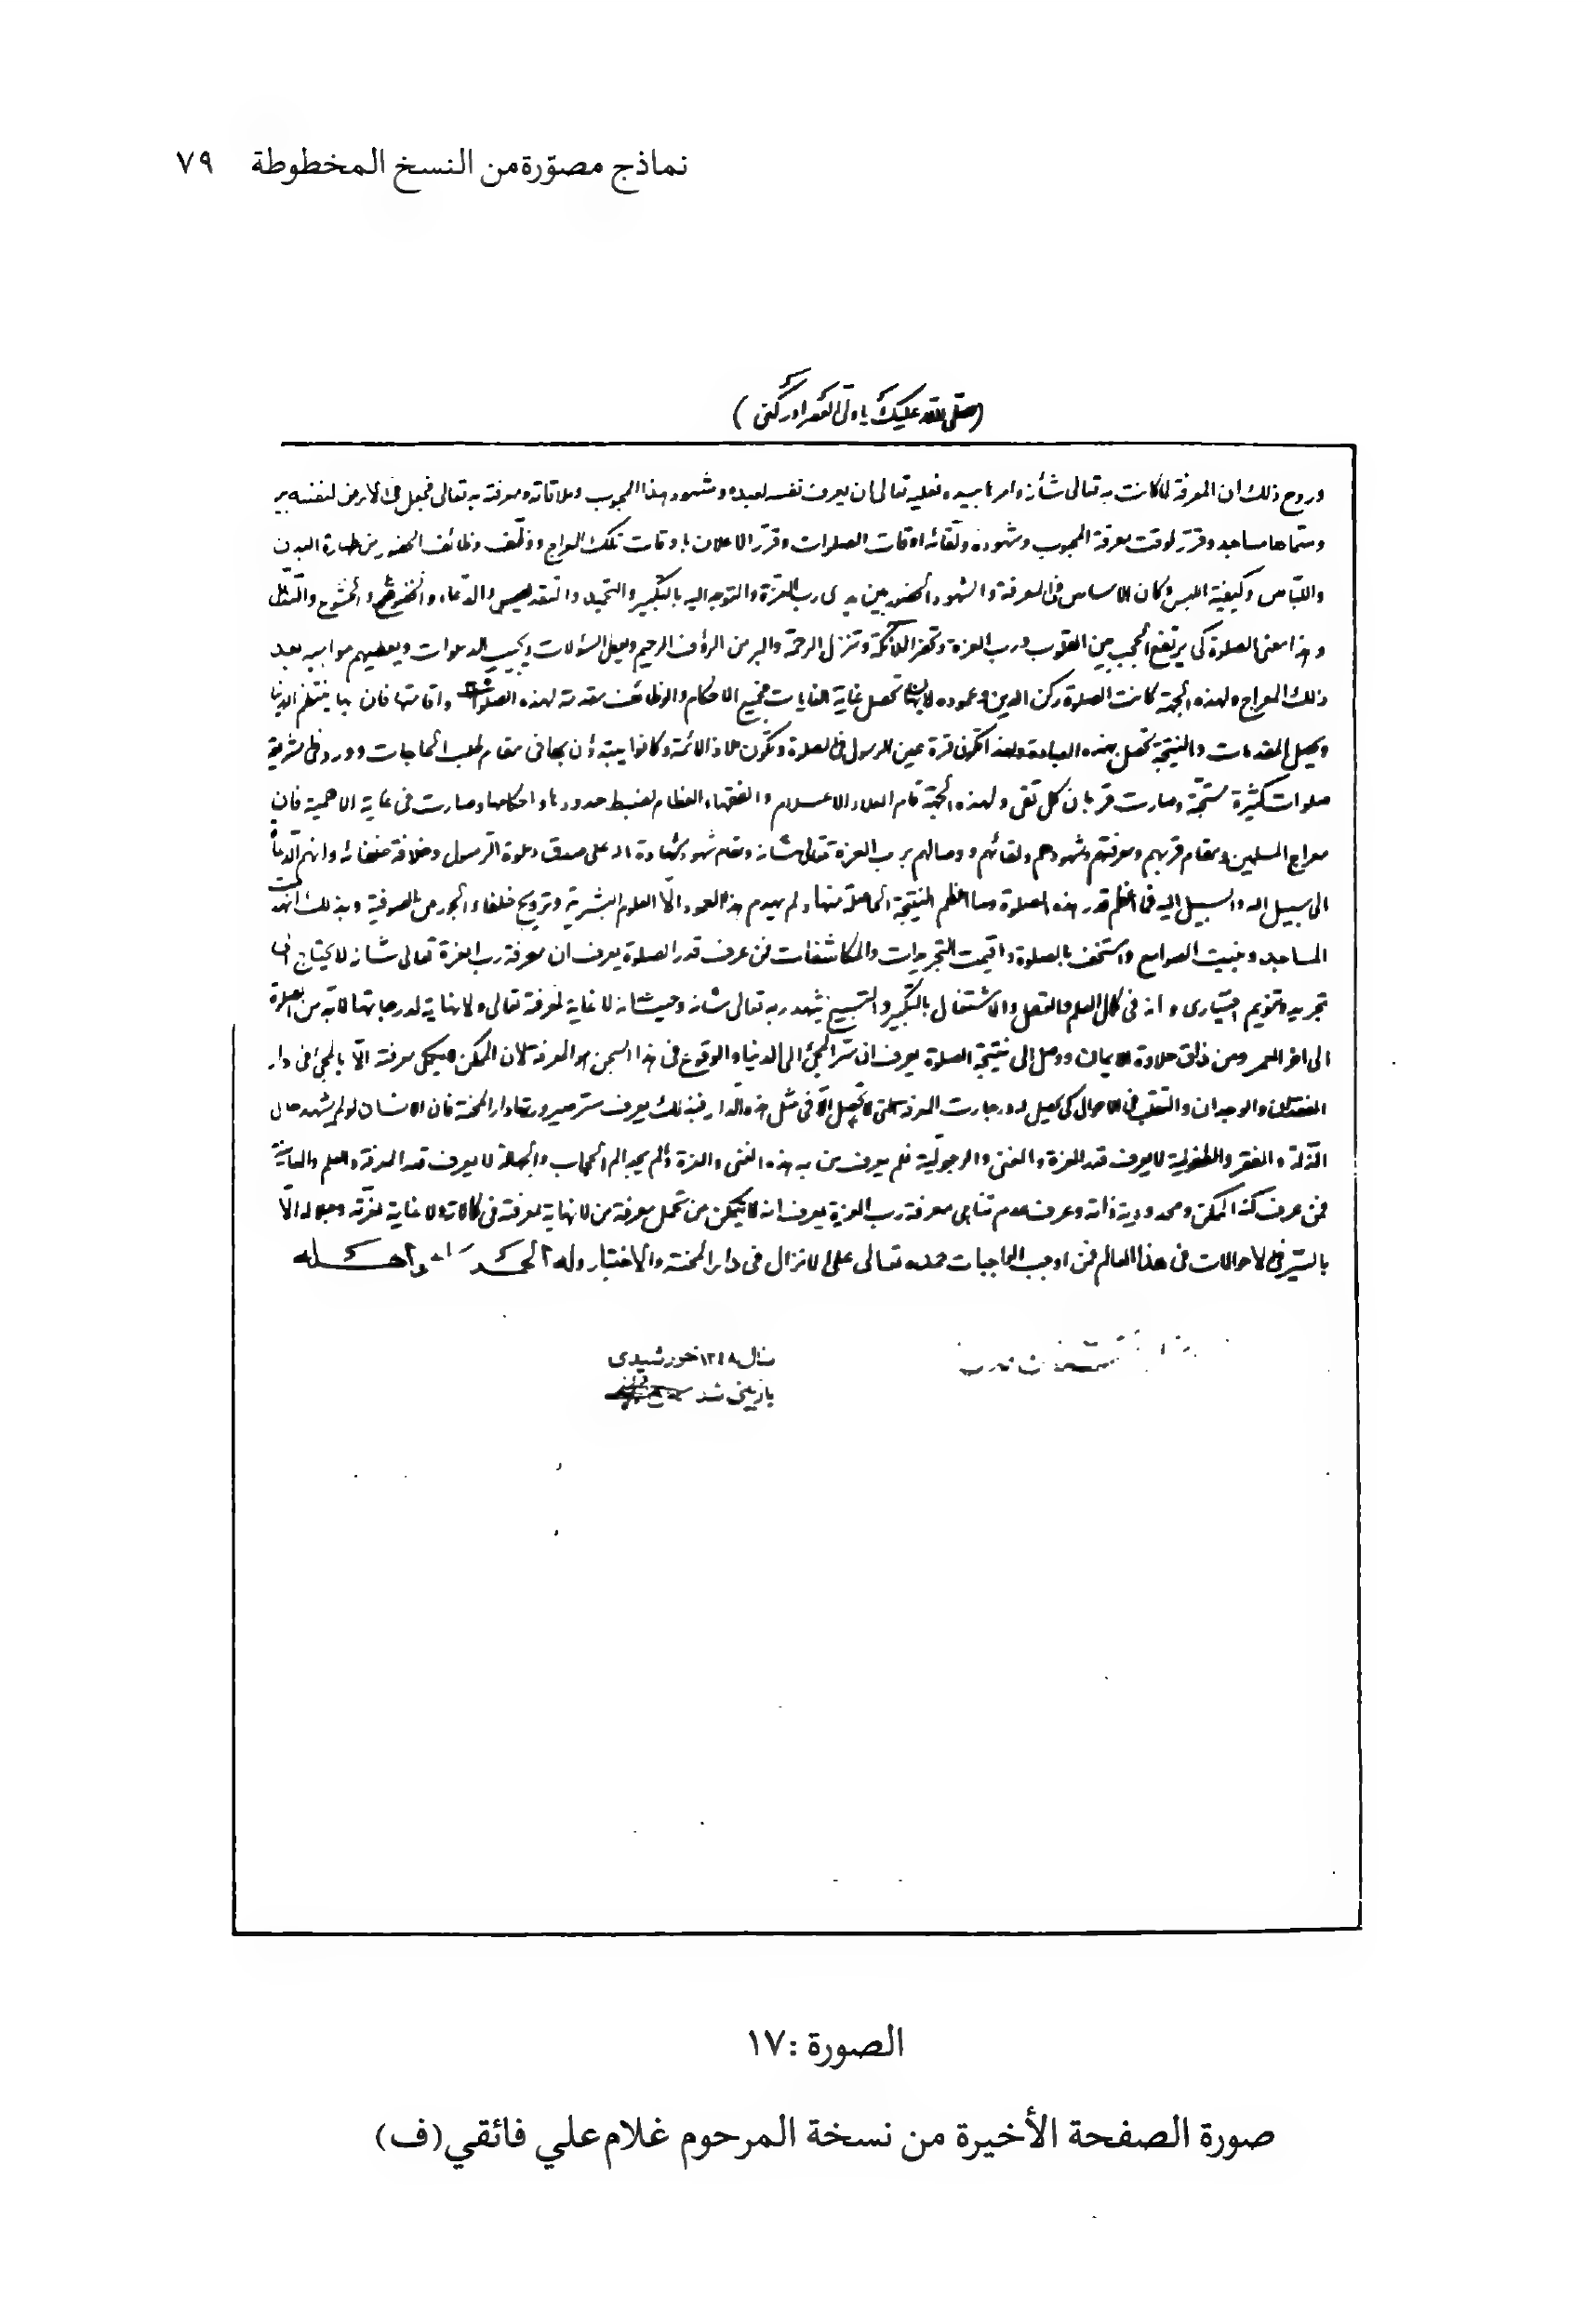 نماذج مصوّرة من النسخ المخطوطة ٧٩
(صلى الله عليك يا ولى العصر ادركنى)
وروح ذلك ان المعرفة لما كانت به تعالى شأنه وامرها بيده فعليه تعالى ان يعرف نفسه لعبده وشهود هذا المحبوب وملاقاته ومعرفته به تعالى فجعل فى الارض لنفسه
وسمّاها مساجد وقرّر لوقت معرفة المحبوب وشهوده ولقائه اوقات الصلوات وقرّر الاعلان باوقات تلك المعراج ووظّف وظائف الحضور من طهارة البدن
واللباس وكيفية اللبس وكان الاساس فى المعرفة والشهود والحضور بين يدى رب العزة والتوجه اليه بالتكبير والتحميد والتقديس والدّعاء والخضوع والخشوع والتذلل
وهذا معنى الصلوة كى يرتفع الحجب بين القلوب ورب العزة وتحضر الملائكة وتنزل الرحمة والبر من الرؤف الرحيم ويعطى السئولات ويجيب الدعوات ويعطيهم مواهبه بعد
ذلك المعراج ولهذه الجهة كانت الصلوة ركن الدين وعموده لانّها تحصل غاية الغايات فجميع الاحكام والوظائف مقدمة لهذه الصلوات واقامتها فان بها ينتظم الدنيا
ويحصل المقدمات والنتيجة تحصل بهذه العبادة ولهذا تكون قرة عين الرسول فى الصلوة وتكون ملاذ الائمة وكانوا يبتدؤن بها فى مقام طلب الحاجات وورد فى الشريعة
صلوات كثيرة مستحبّة وصارت قربان كل تقى ولهذه الجهة قام العلماء الاعلام والفقهاء العظام لضبط حدودها واحكامها وصارت فى غاية الاهمية فان
معراج المسلمين ومقام قربهم ومعرفتهم وشهودهم ولقائهم ووصالهم برب العزة تعالى شأنه ومقام شهود شهادة الله على صدق دعوة الرسول وخلافة خلفائه وانهم الدعاة
الى سبيل الله والسبيل اليه فما اعظم قدر هذه الصلوة وما اعظم النتيجة الحاصلة منها ولم يهدم هذا العمود الّا العلوم البشرية وترويج خلفاء الجور من الصوفية وبذلك انهدمت
المساجد وبنيت الصوامع واستخف بالصلوة واقيمت التجريدات والمكاشفات فمن عرف قدر الصلوة يعرف ان معرفة رب العزة تعالى شأنه لا يحتاج الى
تجريد وتنويم اختيارى وانه فى كمال العلم والعقل والاشتغال بالتكبير والتسبيح يشهد ربه تعالى شأنه وحيث انه لا غاية لمعرفته تعالى ولا نهاية لدرجاتها لابد من الصلوة
الى اخر العمر ومن ذاق حلاوة الايمان ووصل الى نتيجة الصلوة يعرف ان سرّ المجئ الى الدنيا والوقوع فى هذا السجن هو المعرفة لان الممكن معرفته الّا بالمجئ فى دار
الفقدان والوجدان والتقلب فى الاحوال كى يحصل له درجات المعرفة التى لا تحصل الّا فى مثل هذه الدّار فبذلك يعرف سرّ صيرورتها دار المحنة فان الانسان لو لم يشهد حال
الذلة والفقر والطفولية لا يعرف قدر العزة والغنى والرجوليّة فلم يعرف من به هذه الغنى والعزة ولم يجد الم الحجاب والجهالة لا يعرف قدر المعرفة والعلم والمعاينة
فمن عرف كنه الممكن ومحدودية ذاته وعرف عدم تناهى معرفة رب العزة يعرف انه لا يتمكن من تحمل معرفة من لا نهاية لمعرفته فى كمالاته ولا غاية لعزّته وجلاله الّا
بالسّير فى الحالات فى هذا العالم فمن اوجب الواجبات حمده تعالى على الانزال فى دار المحنة والاختبار وله الحمد كما هو اهله
سال ١٣٤٨ خورشيدى
بازبينى شد
الصورة : ١٧
صورة الصفحة الأخيرة من نسخة المرحوم غلام علي فائقي (ف)